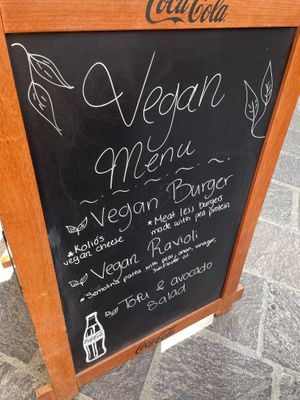 Coca-Cola
Vegan
Menu
Vegan Burger
* Kolios
vegan cheese
* Meat less burgers
made with pea protein
Vegan Ravioli
pasta with peas, onion, vinegar,
sunflower oil
Tofu & avocado
salad
Coca-Cola